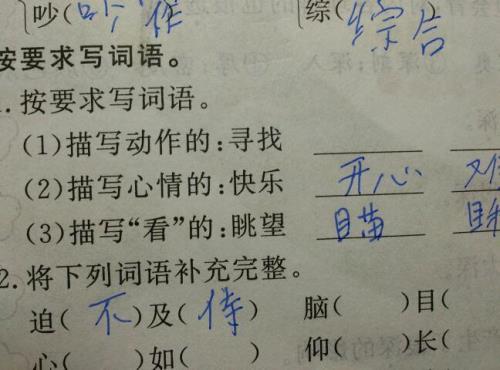 吵(吵作 综(综合
按要求写词语。
1.按要求写词语。
(1)描写动作的:寻找
(2)描写心情的:快乐 开心
(3)描写“看”的:眺望 瞄
2.将下列词语补充完整。
迫(不)及(侍) 脑( )目(
心( )如( ) 仰( )长(